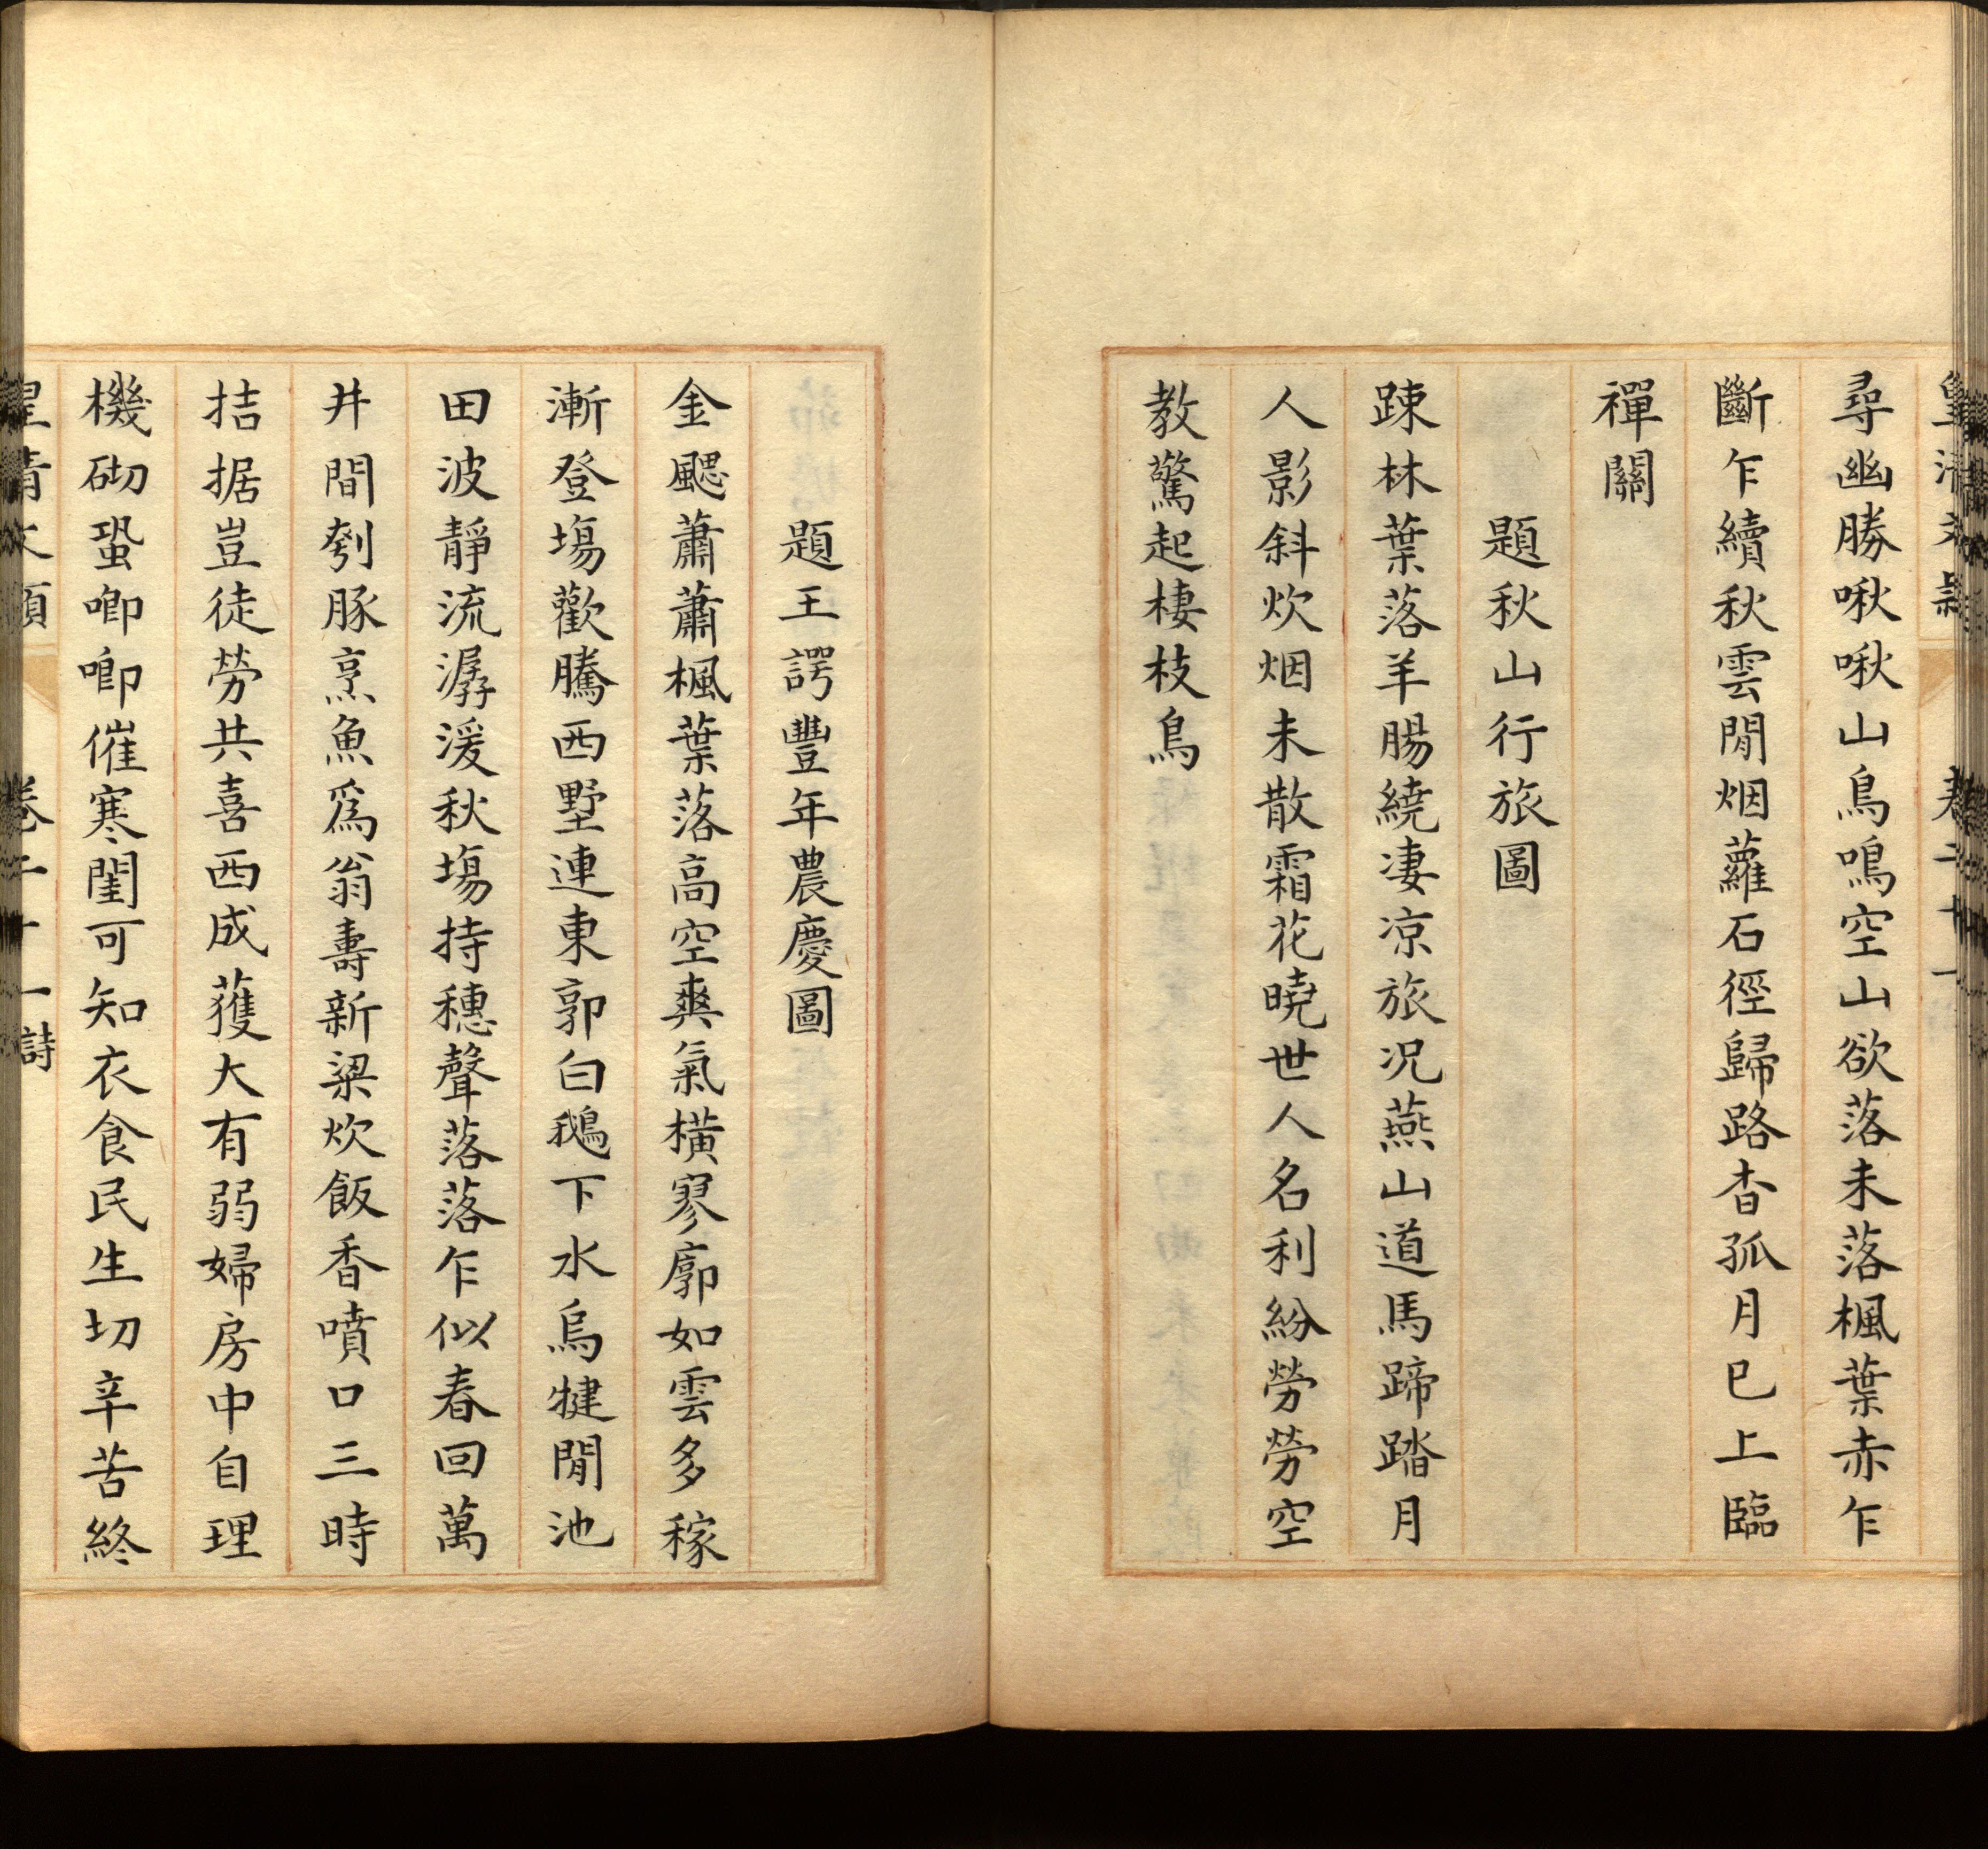 尋幽勝啾啾山鳥鳴空山欲落未落楓葉赤乍
斷乍續秋雲閒烟蘿石徑歸路杳孤月已上臨
禪關
題秋山行旅圖
踈林葉落羊腸繞凄凉旅况燕山道馬蹄踏月
人影斜炊烟未散霜花曉世人名利紛勞勞空
教驚起棲枝鳥
題王諤豐年農慶圖
金颸蕭蕭楓葉落高空爽氣橫寥廓如雲多稼
漸登塲歡騰西墅連東郭白鵝下水烏犍閒池
田波靜流潺湲秋塲持穗聲落落乍似春回萬
井間刳豚烹魚為翁壽新粱炊飯香噴口三時
拮据豈徒勞共喜西成獲大有弱婦房中自理
機砌蛩唧唧催寒閨可知衣食民生切辛苦終
皇清文穎 卷二十一 詩